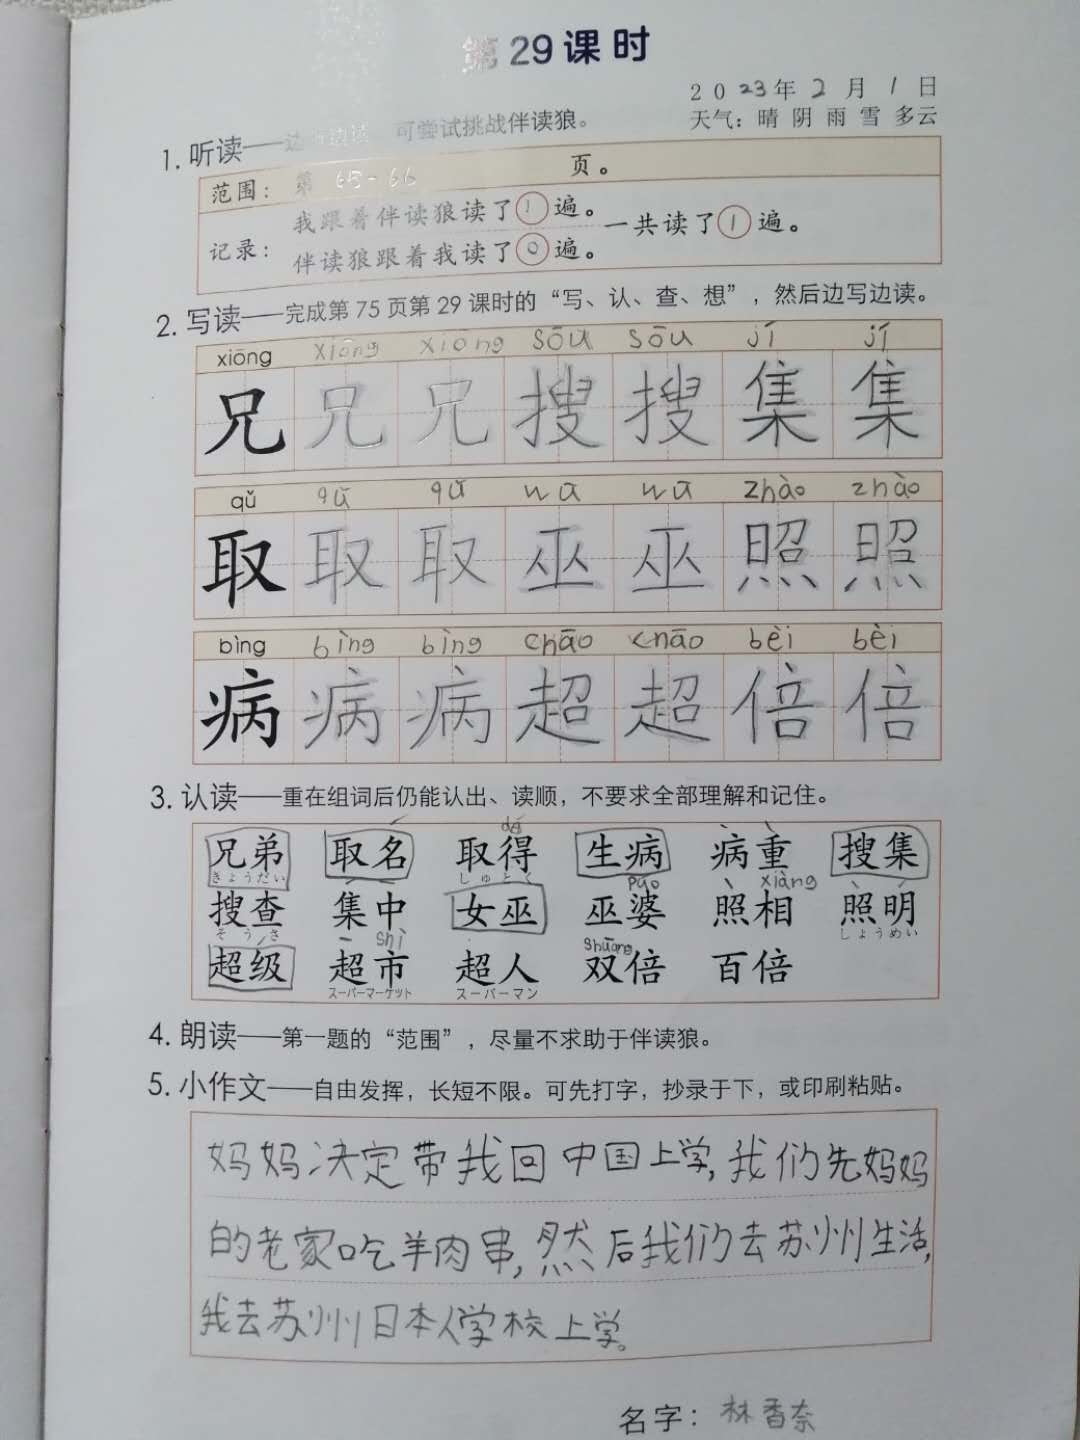 第29课时
2023年2月1日
天气：晴 阴 雨 雪 多云
1. 听读——边听边读，可尝试挑战伴读狼。
范围：第 65-66 页。
记录：我跟着伴读狼读了1遍。一共读了1遍。
伴读狼跟着我读了0遍。
2. 写读——完成第75页第29课时的“写、认、查、想”，然后边写边读。
xiōng xiōng xiōng sōu sōu jí jí
兄 兄 兄 搜 搜 集 集
qǔ qǔ qǔ wū wū zhào zhào
取 取 取 巫 巫 照 照
bìng bìng bìng chāo chāo bèi bèi
病 病 病 超 超 倍 倍
3. 认读——重在组词后仍能认出、读顺，不要求全部理解和记住。
dé
兄弟 取名 取得 生病 病重 搜集
きょうだい しゅとく pó xiàng
搜查 集中 女巫 巫婆 照相 照明
そうさ shì shuāng しょうめい
超级 超市 超人 双倍 百倍
スーパーマーケット スーパーマン
4. 朗读——第一题的“范围”，尽量不求助于伴读狼。
5. 小作文——自由发挥，长短不限。可先打字，抄录于下，或印刷粘贴。
妈妈决定带我回中国上学，我们先妈妈
的老家吃羊肉串，然后我们去苏州生活，
我去苏州日本人学校上学。
名字：林香奈